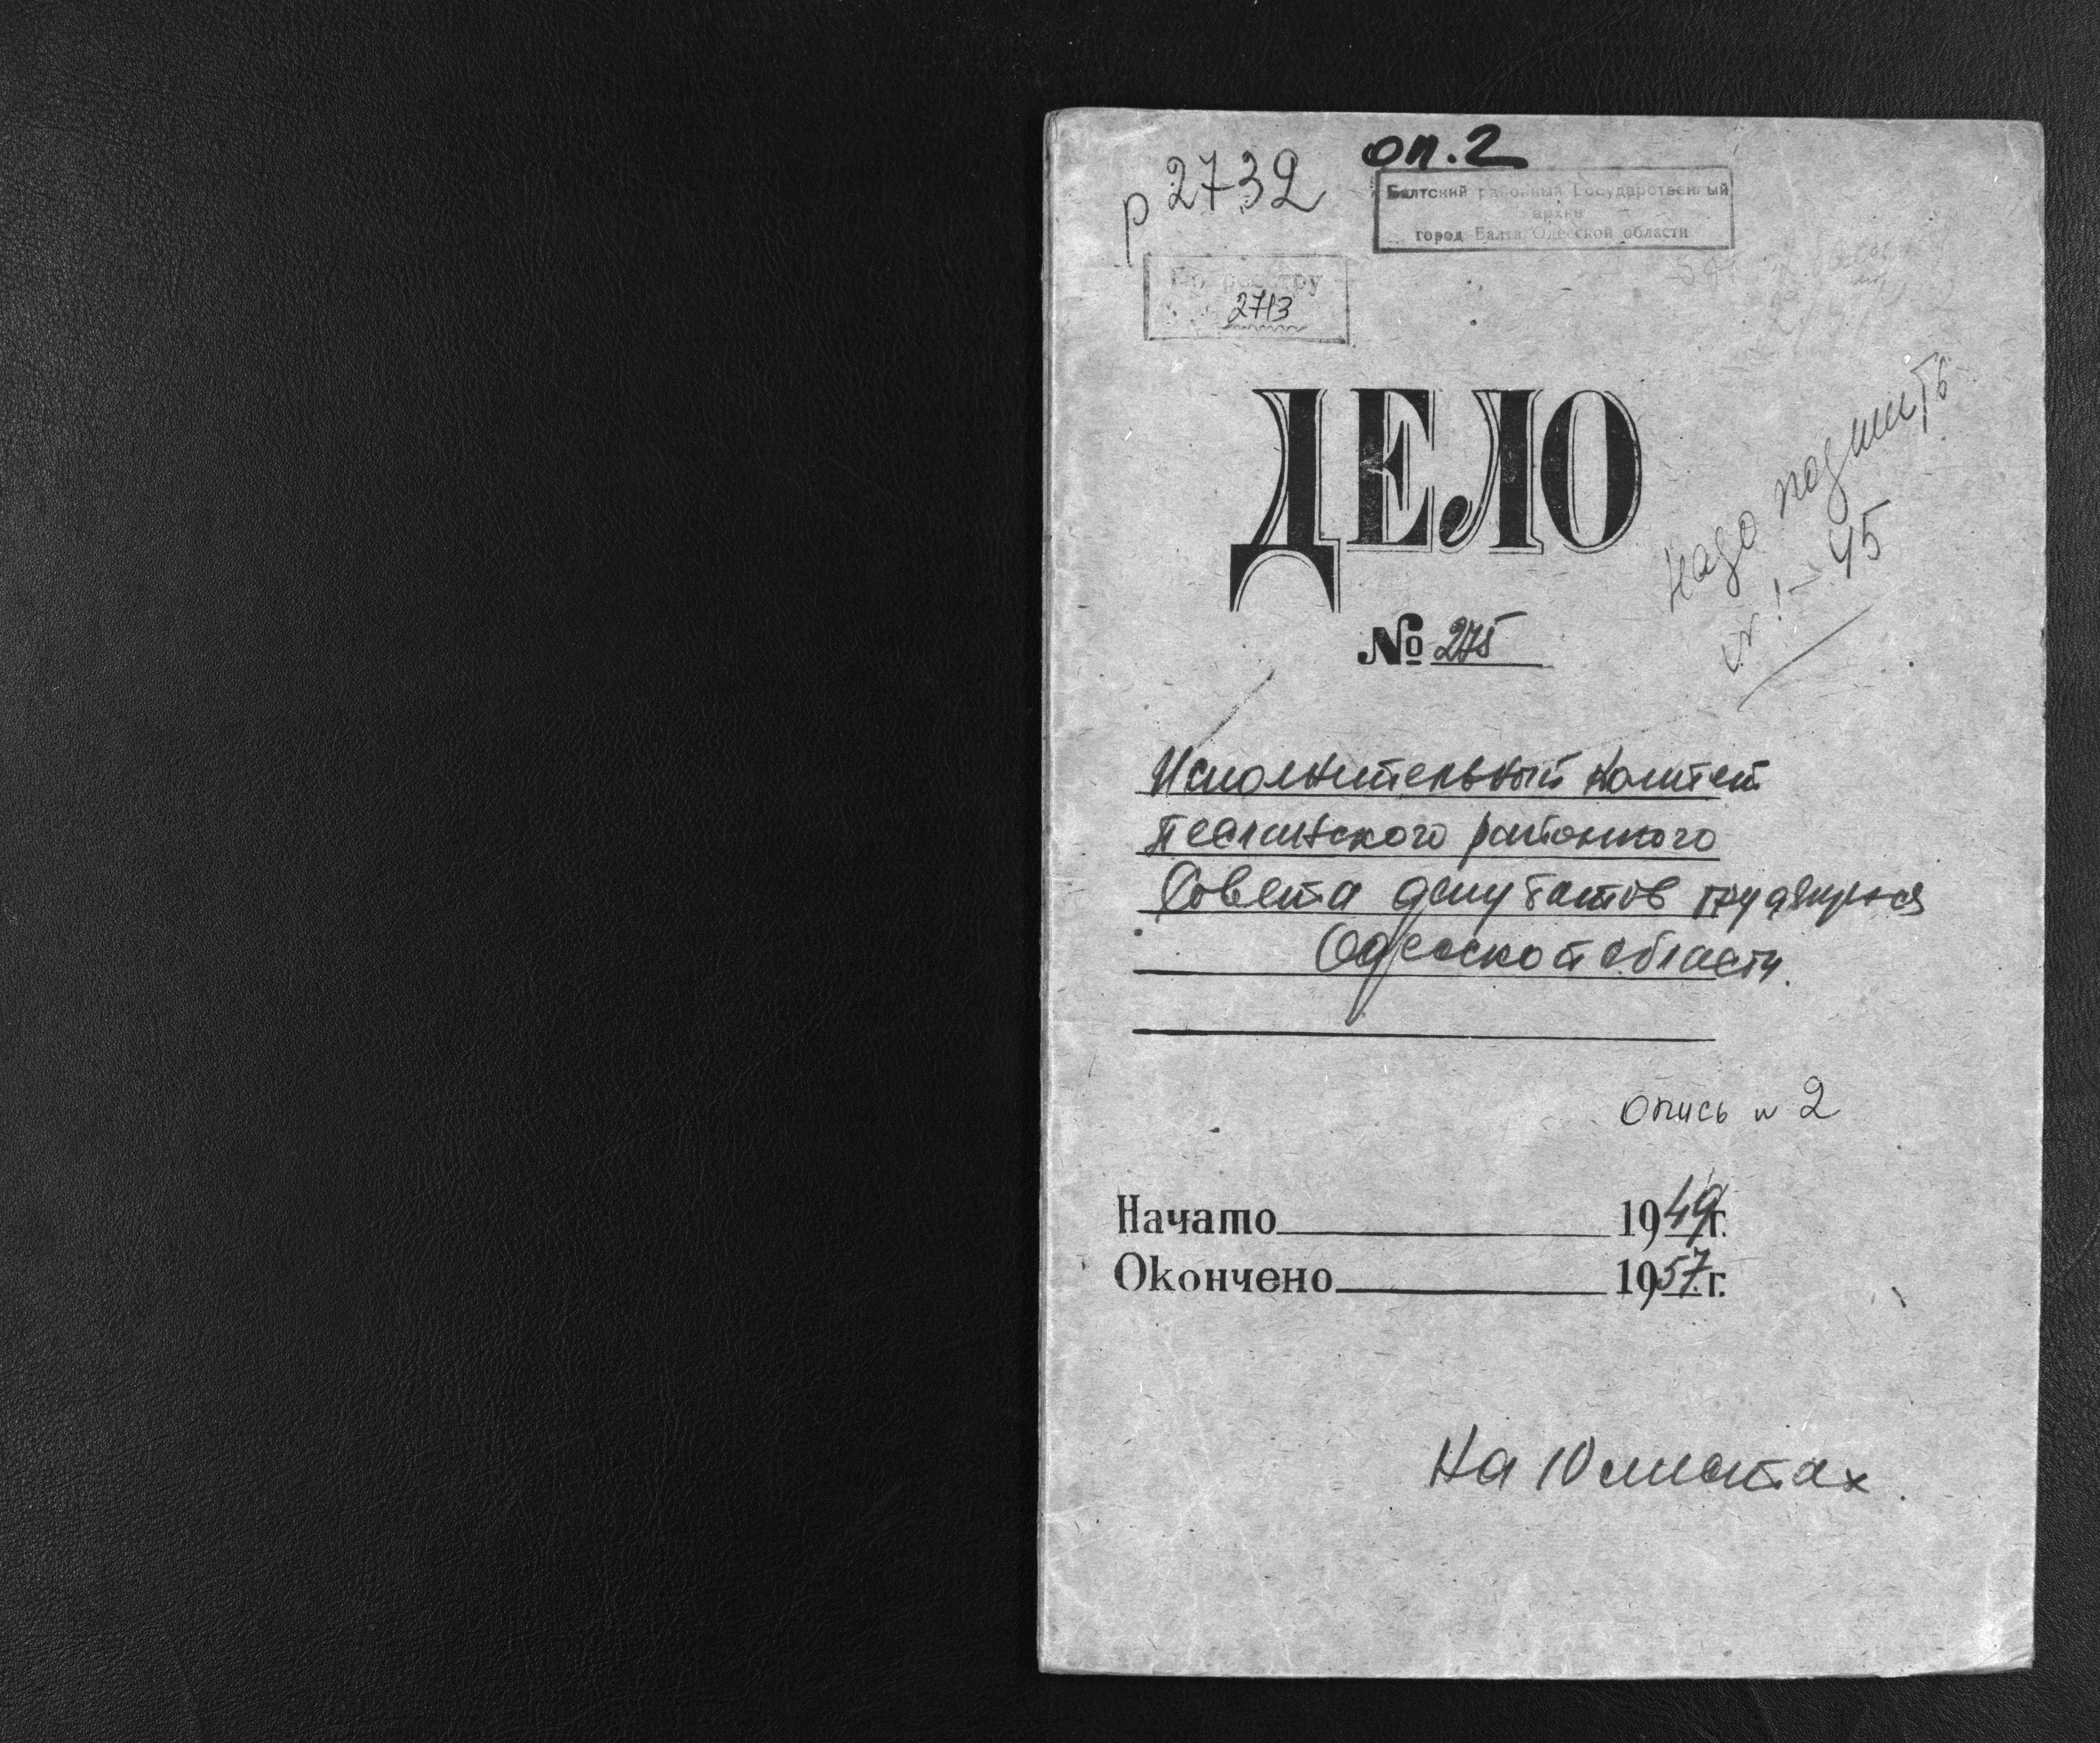 оп.2
р 2732
Балтский районный Государственный
архив
город Балта Одесской области
По реестру
2713
ДЕЛО
Надо подшить
№ 1-45
№ 275
Исполнительный комитет
Песчанского районного
Совета депутатов трудящихся
Одесской области.
Опись № 2
Начато 1949г.
Окончено 1957г.
На 10 листах.